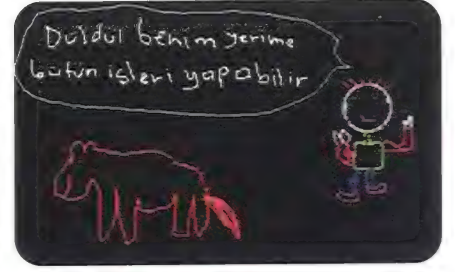 Düldül benim yerime
bütün işleri yapabilir